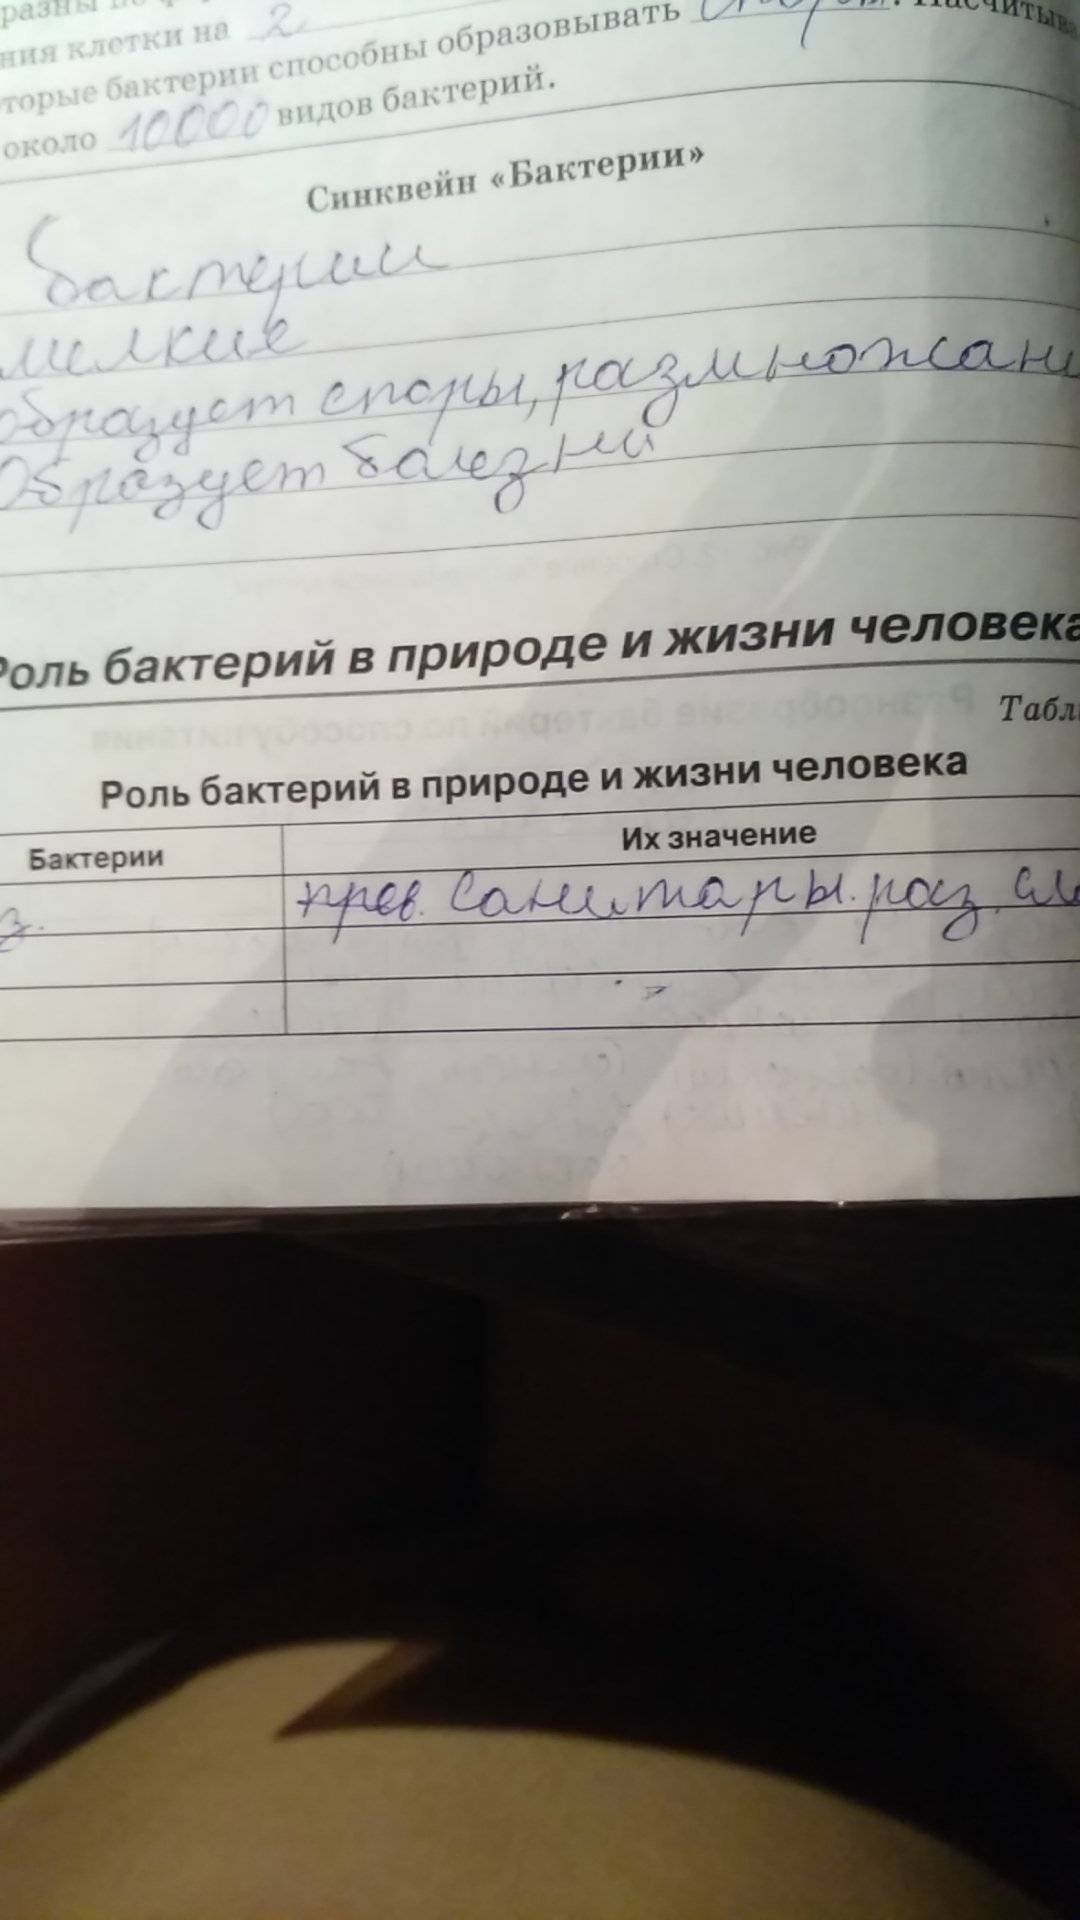 ния клетки на 2
торые бактерии способны образовывать
около 10000 видов бактерий.
Синквейн «Бактерии»
бактерии
милкие
образует споры, размножани
Образует балезни
Роль бактерий в природе и жизни человека
Табли
Роль бактерий в природе и жизни человека
Бактерии Их значение
з. прев. Санитары. раз.